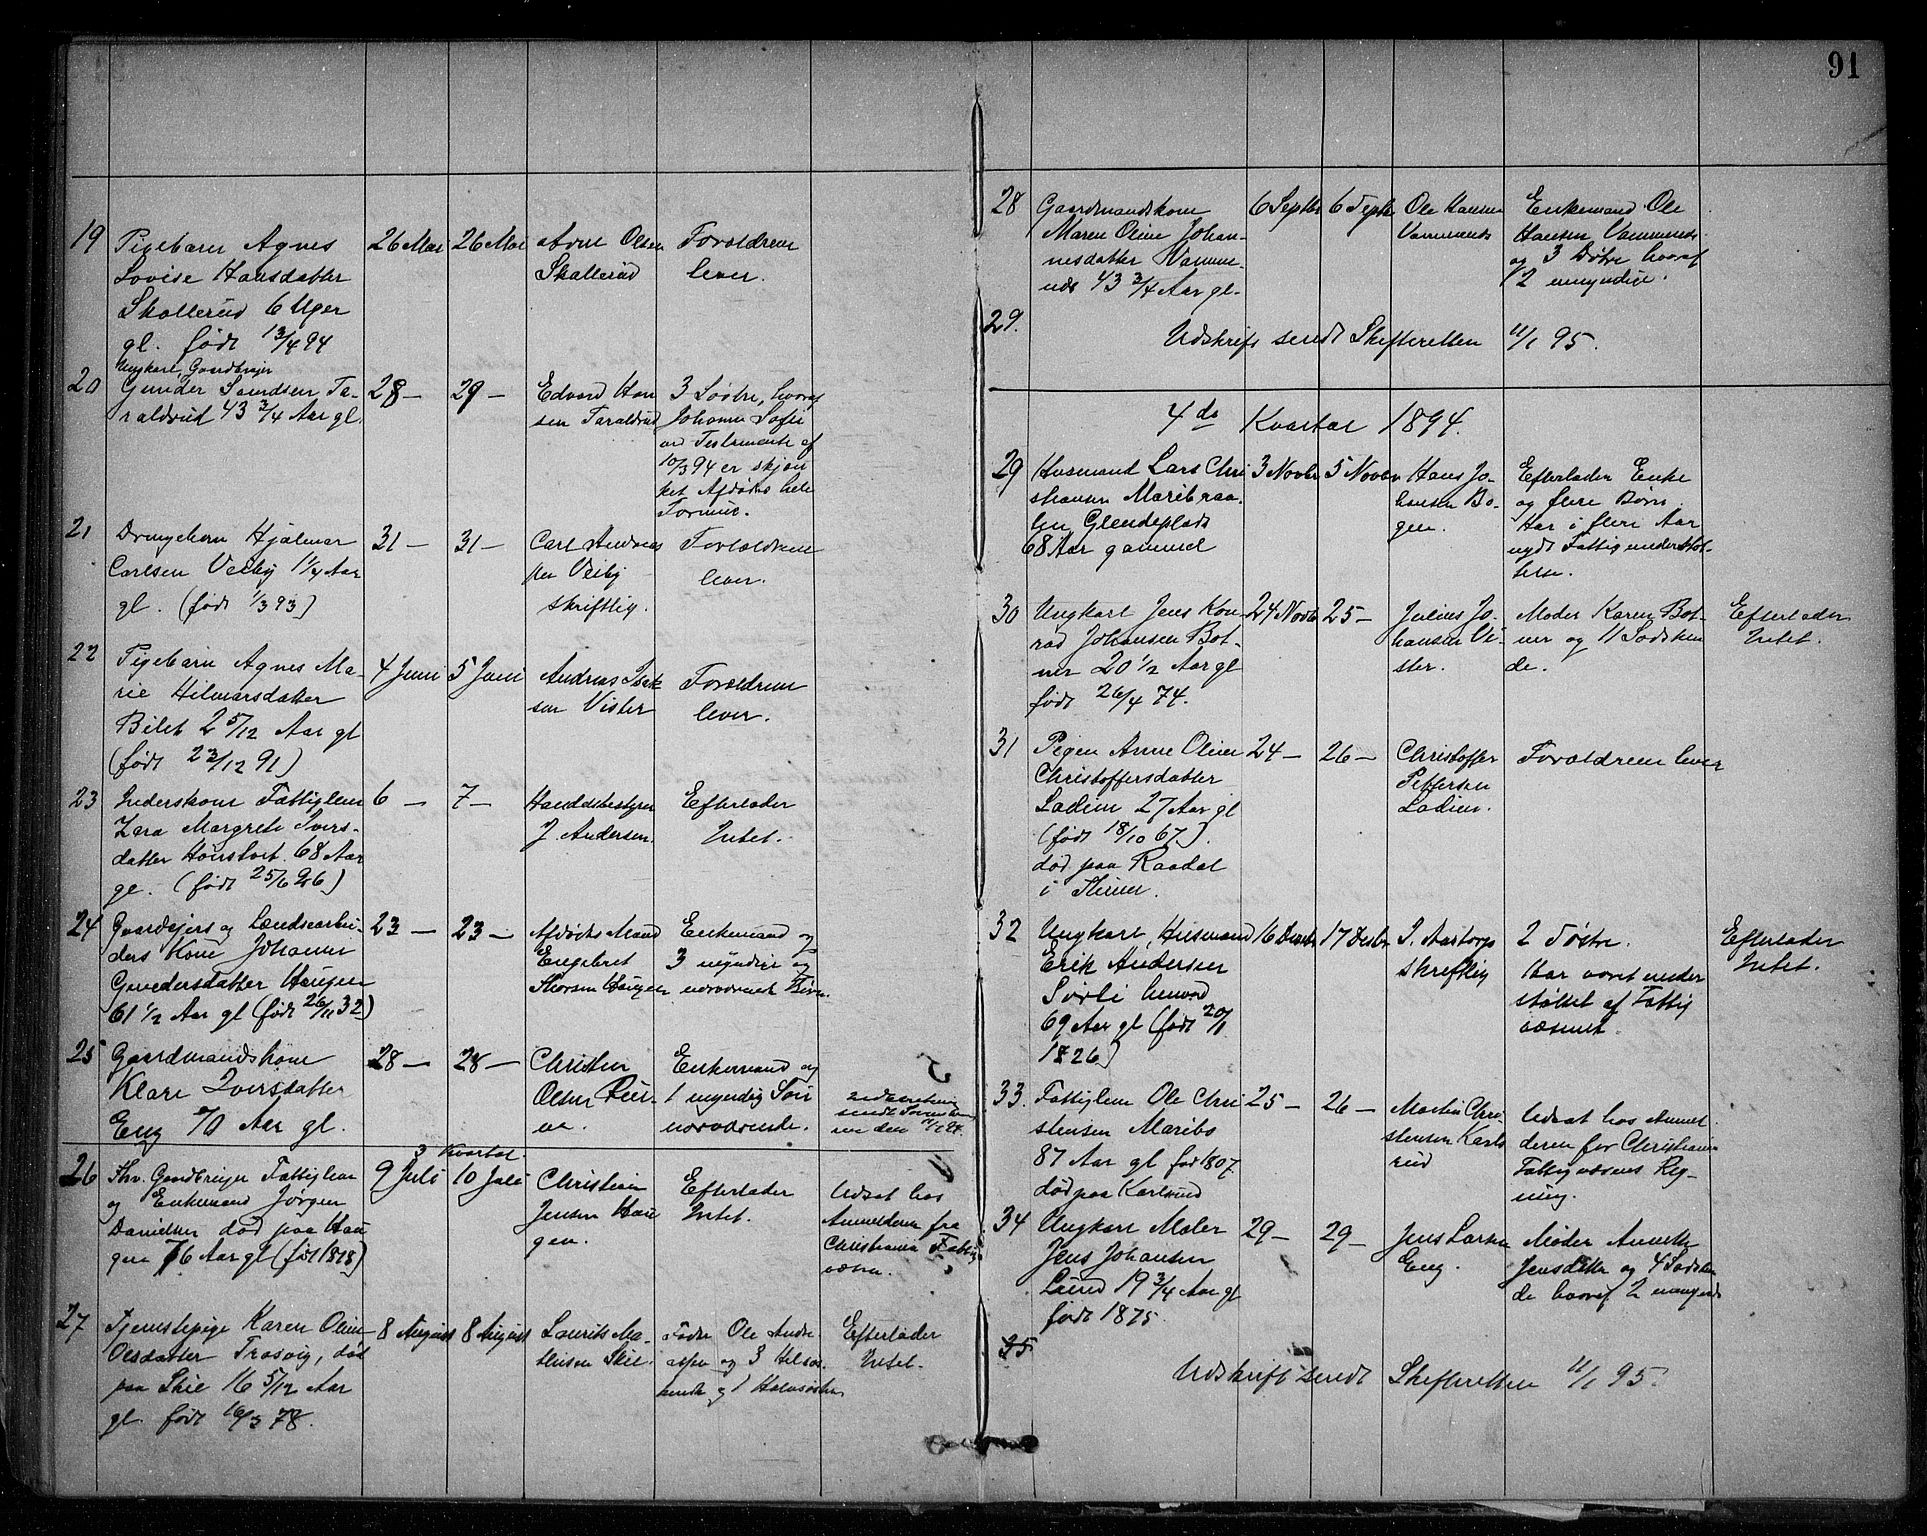 91
19
Pigebarn Agnes
Lovise Hansdatter
Skollerud 6 Uger
gl. født 13/4 94
26 Mai
26 Mai
Arne Olsen
Skollerud
Forældrene
lever.
20
Ungkarl, Gaardbruger
Gunder Ta-
raldrud 43 3/4 Aar gl.
28 —
29 —
Edvard Han
sen Taraldrud
3 Søstre, hvoraf
Johanne Sofie
ved Testamente af
10/3 94 er skjæn
ket Afdødes hele
Formue.
21
Drengebarn Hjalmar
Carlsen Vevby 1 1/4 Aar
gl. (født 1/3 93)
31 —
31 —
Carl Andreas
sen
skriftlig.
Forældrene
lever.
22
Pigebarn Agnes Ma-
rie Hilmarsdatter
Bilet 2 5/12 Aar gl
(født 23/12 91)
4 Juni
5 Juni
Andreas Isak
sen Vister
Forældrene
lever.
23
Inderskone Fattiglem
Margrete Ivers-
datter 68 Aar
gl. (født 25/6 26)
6 —
7 —
J. Andersen.
Efterlader
Intet.
24
Gaardejers og
ders Kone Johanne
Gundersdatter Haugen
61 1/2 Aar gl (født 26/11 32)
23 —
23 —
Afdødes Mand
Engebret
Thorsen Haugen
Enkemand og
3 myndige og
nærværende Børn.
25
Gaardmandskone
Klare Iversdatter
Eng 70 Aar gl.
28 —
28 —
Christen
Olsen
Enkemand og
1 myndig Søn
nærværende.
3 Kvartal.
26
Fhv. Gaardbruger Fattiglem
og Enkemand Jørgen
Danielsen død paa Hau
gen 76 Aar gl (født 1818)
9 Juli
10 Juli
Christian
Jensen Hau
gen.
Efterlader
Intet.
Udsat hos
Anmelderen fra
Christiania Fattig
væsen.
27
Tjenstepige Karen Oline
Olsdatter Trosvig, død
paa Skie 16 5/12 Aar
gl. født 16/3 78.
8 August
8 August
Laurits Ma-
thisen Skie.
Fader Ole Andre-
asen og 3 Helsøs-
kende og 1 Halvsøster
Efterlader
Intet.
28
Gaardmandskone
Maren Oline Johan-
nesdatter Vamme-
nds 43 3/4 Aar gl.
6 Septbr
6 Septbr
Ole Hansen
Enkemand Ole
Hansen
og 3 Døtre hvoraf
2 umyndige.
29.
Udskrift sendt Skifteretten 11/1 95.
4de Kvartal 1894.
29
Husmand Lars Chri
stiansen Maribraa-
ten Glendeplads
68 Aar gammel
3 Novbr
5 Novbr
Hans Jo-
hansen Bo-
gen.
Efterlader Enke
og flere Børn.
Har i flere Aar
nydt Fattigunderstøt-
telse.
30
Ungkarl Jens Kon-
rad Johansen Bot-
ner 20 1/2 Aar gl
født 26/4 74.
24 Novbr
25 —
Julius Jo-
hansen Vi-
ster.
Moder Karen Bot-
ner og 11 Sødsken
de.
Efterlader
Intet.
31
Pigen Anne Oline
Christoffersdatter
Ladim 27 Aar gl
(født 18/10 67.)
død paa Raadal
i
24 —
26 —
Christoffer
Pettersen
Ladim.
Forældrene lever
32
Ungkarl, Husmand
Erik Andersen
Sørli henved
69 Aar gl (født 20/1
1826)
16 Decbr
17 Decbr
J. Aastorp
skriftlig
2 Søstre.
Har været under
støttet af Fattig
væsenet.
Efterlader
Intet.
33.
Fattiglem Ole Chri
stensen Maribo
87 Aar gl født 1807.
død paa Karlsrud
25 —
26 —
Martin Chri-
stensen Karls
rud
Udsat hos Anmel-
deren for Christiania
Fattigvæsens Reg-
ning.
34
Ungkarl Maler
Jens Johansen
19 3/4 Aar gl
født 1875.
29 —
29 —
Jens Larsen
Eng.
Moder Annette
Jensdatter og 4 Sødsken
de hvoraf 2 umyndige
35
Udskrift sendt Skifteretten 11/1 95.